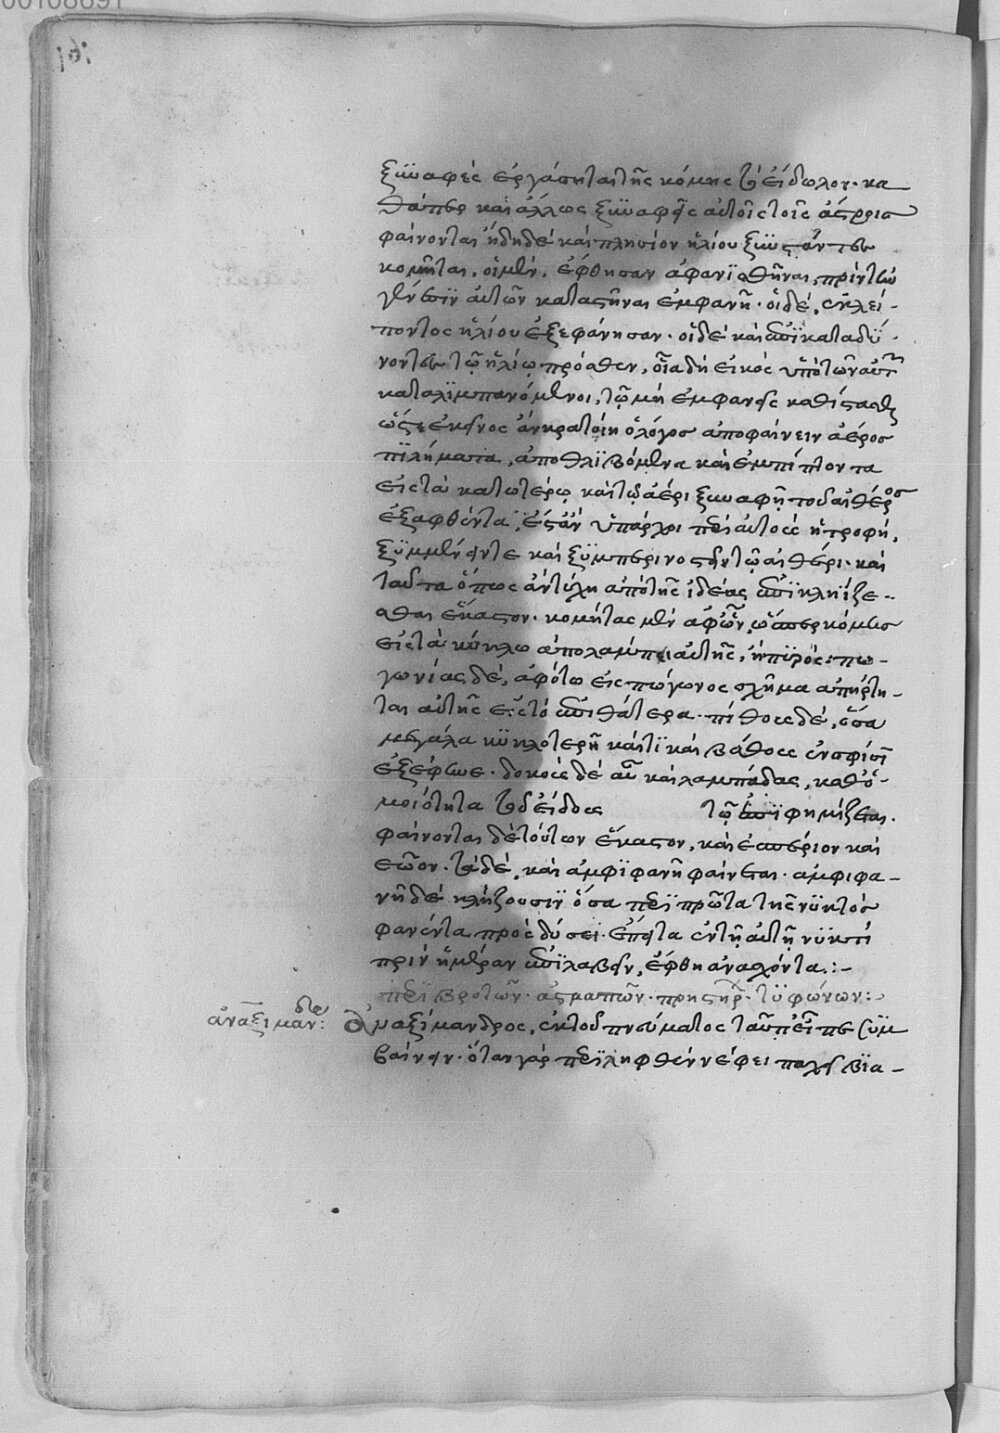 00108691
ξυναφὲς ἐργάσηται τῆς κόμης τὸ εἴδωλον· κα
θάπερ καὶ ἄλλως ξυναφεῖς αὐτοῖς τοῖς ἄστροις
φαίνονται ἤδη δὲ καὶ πλησίον ἡλίου ξυστάντες
κομῆται, οἱ μὲν, ἔφθησαν ἀφανισθῆναι, πρὶν τὴν
γένεσιν αὐτῶν καταστῆναι ἐμφανῆ· οἱ δὲ, ἐκλεί-
ποντος ἡλίου ἐξεφάνησαν· οἱ δὲ καὶ ἐπικαταδύ-
νοντες τῷ ἡλίῳ πρόσθεν, οἷα δὴ εἰκὸς ὑπὸ τῶν αὐτοῦ
καταλιμπανόμενοι, τῷ μὴ ἐμφανεῖς καθίστασθαι
ὥστε ἐκεῖνος ἂν κρατοίη ὁ λόγος ἀποφαίνειν ἀέρος
πιλήματα, ἀποθλιβόμενα καὶ ἐμπίπτοντα
εἰς τὰ κατωτέρω καὶ τῷ ἀέρι ξυναφῆ· τοῦ αἰθέρος
ἐξαφθέντα, ἔστ' ἂν ὑπάρχοι περὶ αὐτοὺς ἡ τροφή,
ξυμμένειν τε καὶ ξυμπερινοστεῖν τῷ αἰθέρι· καὶ
ταῦτα ὅπως ἂν τύχῃ ἀπὸ τῆς ἰδέας ἐπικληΐζε-
σθαι ἕκαστον· κομήτας μὲν ἀφ' ὧν, ὥσπερ κόμης
εἰς τὰ κύκλῳ ἀπολάμπει αὐτῆς, ἡ πυρός· πω-
γωνίας δὲ, ἀφ' ὅτω εἰς πώγωνος σχῆμα ἀπήρτη-
ται αὐτῆς εἰς τὸ ἐπὶ θάτερα· πίθους δὲ, ὅσα
μεγάλα κυκλοτερῆ καί τι καὶ βάθους ἐν σφίσι
ἐξέφηνε· δοκοὺς δὲ αὖ καὶ λαμπάδας, καθ' ὁ-
μοιότητα τοῦ εἴδους τῷ ἐπιφημίζεται.
φαίνονται δὲ τούτων ἕκαστον, καὶ ἑσπέριον καὶ
ἑῷον· τὰ δὲ, καὶ ἀμφιφανῆ φαίνεται· ἀμφιφα-
νῆ δὲ κλήζουσιν ὅσα περὶ πρῶτα τῆς νυκτὸς
φανέντα πρὸς δύσει· ἔπειτα ἐν τῇ αὐτῇ νυκτὶ
πρὶν ἡμέραν ἐπιλαβεῖν, ἔφθη ἀνασχόντα.:-
περὶ βροντῶν· ἀστραπῶν· πρηστήρων· τυφώνων:
ἀναξίμανδρος: Ἀναξίμανδρος, ἐκ τοῦ πνεύματος ταῦτ' εἶπε συμ
βαίνειν· ὅταν γὰρ περιληφθὲν νέφει παχεῖ βια-